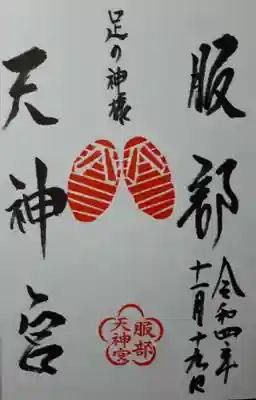 服部
令和四年
十一月十九日
足の神様
天神宮
服部
天神宮